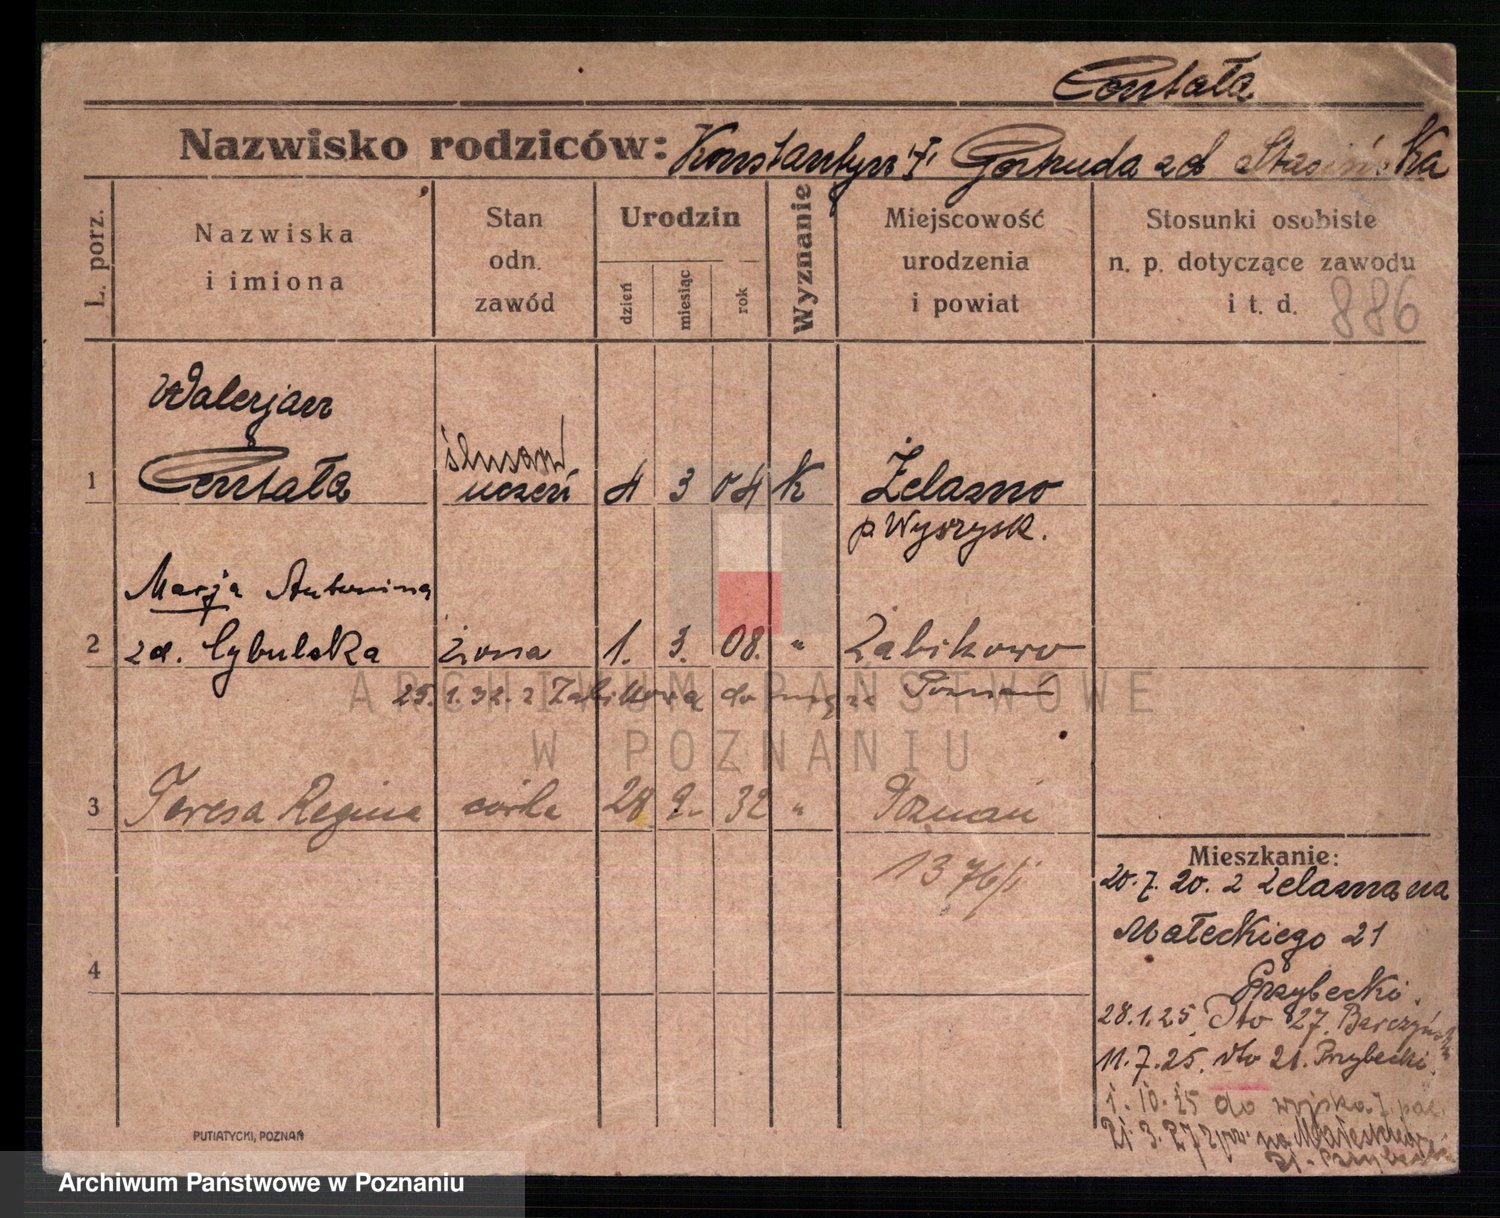 Centała
Nazwisko rodziców: Konstantyn i Gertruda zd Stasińska
L. porz.
Nazwiska
i imiona
Stan
odn.
zawód
Urodzin
dzień
miesiąc
rok
Wyznanie
Miejscowość
urodzenia
i powiat
Stosunki osobiste
n. p. dotyczące zawodu
i t. d.
886
Walerjan
ślusarz
1 Centała uczeń 4 3 04 K Żelazno
p Wyrzysk.
Marja Antonina
2 zd. Cybulska żona 1. 3. 08. " Żabikowo
25.1.32. z Żabikowa do męża Poznań
3 Teresa Regina córka 28 9. 32 " Poznań
1376/i
4
Mieszkanie:
20.7.20. z Żelazna na
Małeckiego 21
Przybecki.
28.1.25. Dto 27. Barczyńsk
11.7.25. dto 21. Przybecki.
1.10.25 do wojska 7 pac
21.3.27 na Małeckiego
21. Przybecki
PUTIATYCKI, POZNAŃ
ARCHIWUM PAŃSTWOWE
W POZNANIU
Archiwum Państwowe w Poznaniu